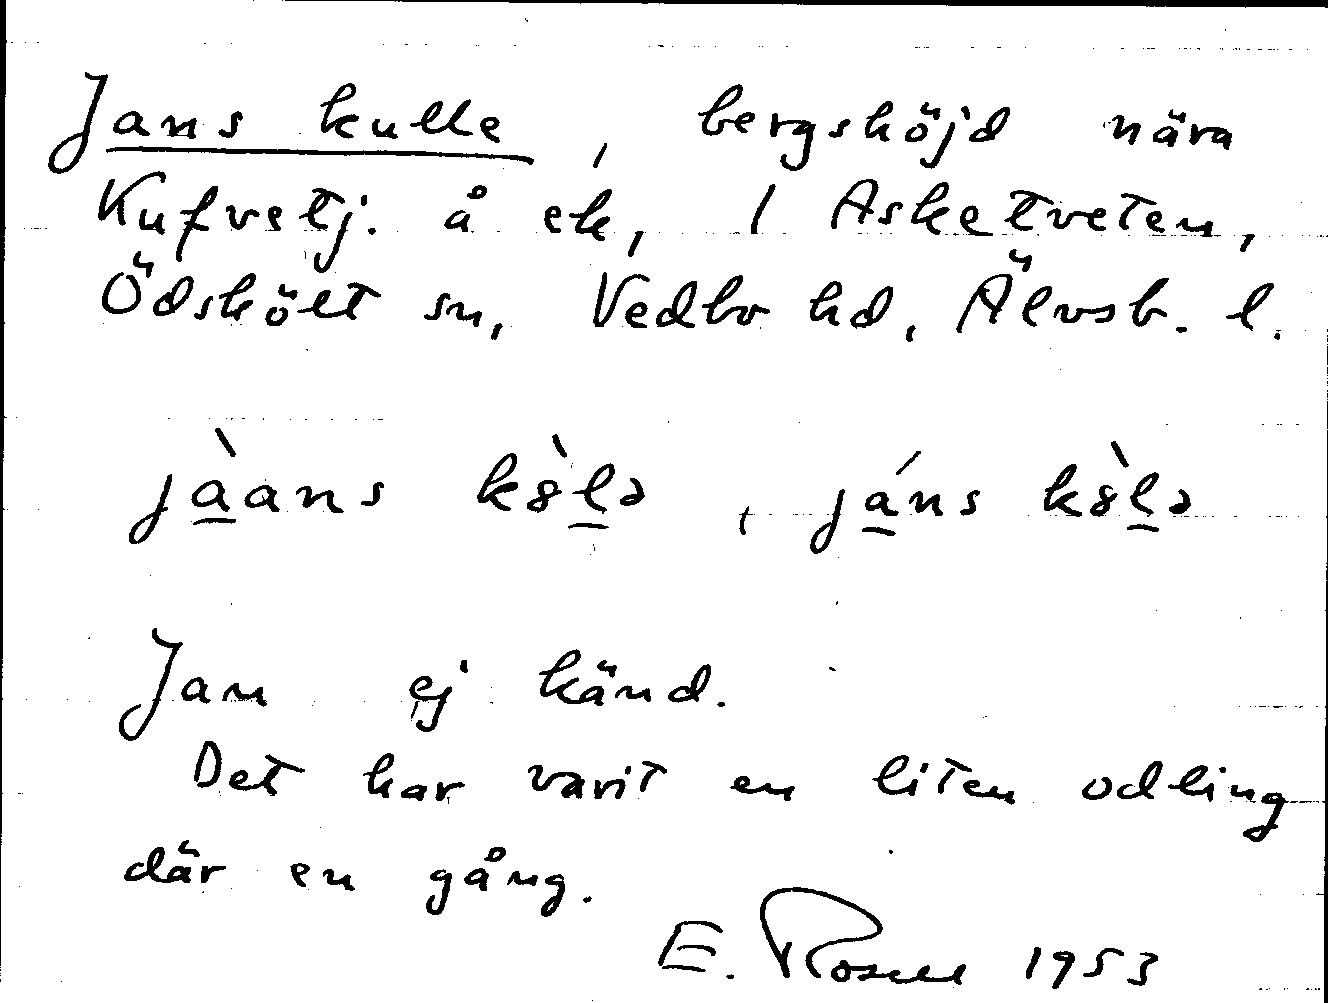 Jans kulle, bergshöjd nära
Kufvetj. å ek, 1 Asketveten,
Ödskölt sn, Vedbo hd, Älvsb. l.
jàans kòlə, jáns kòlə
Jan ej känd.
Det har varit en liten odling
där en gång.
E. Rosell 1953